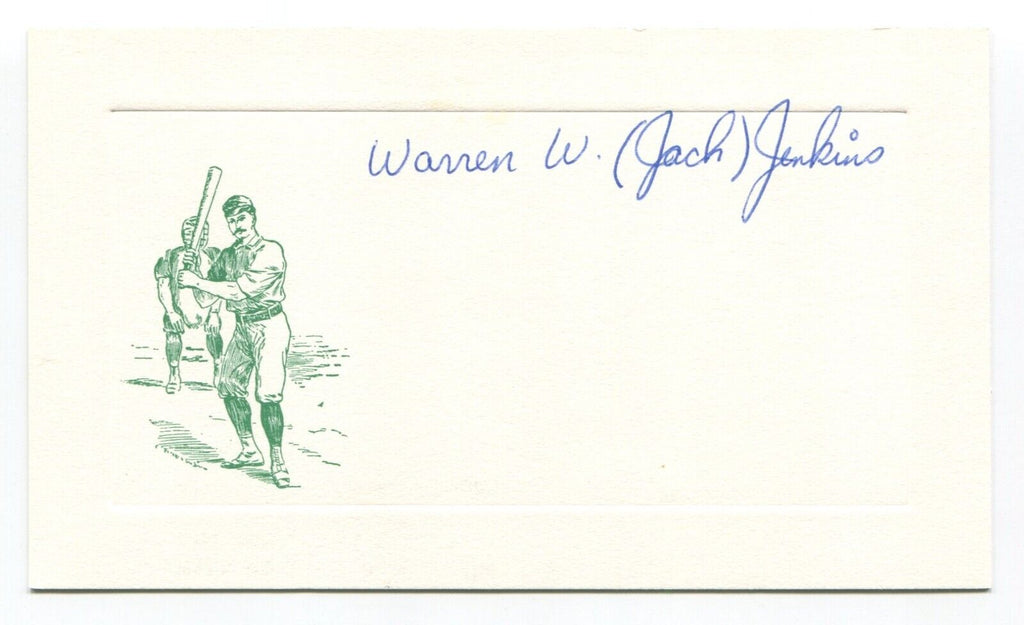 Warren W. (Jack) Jenkins